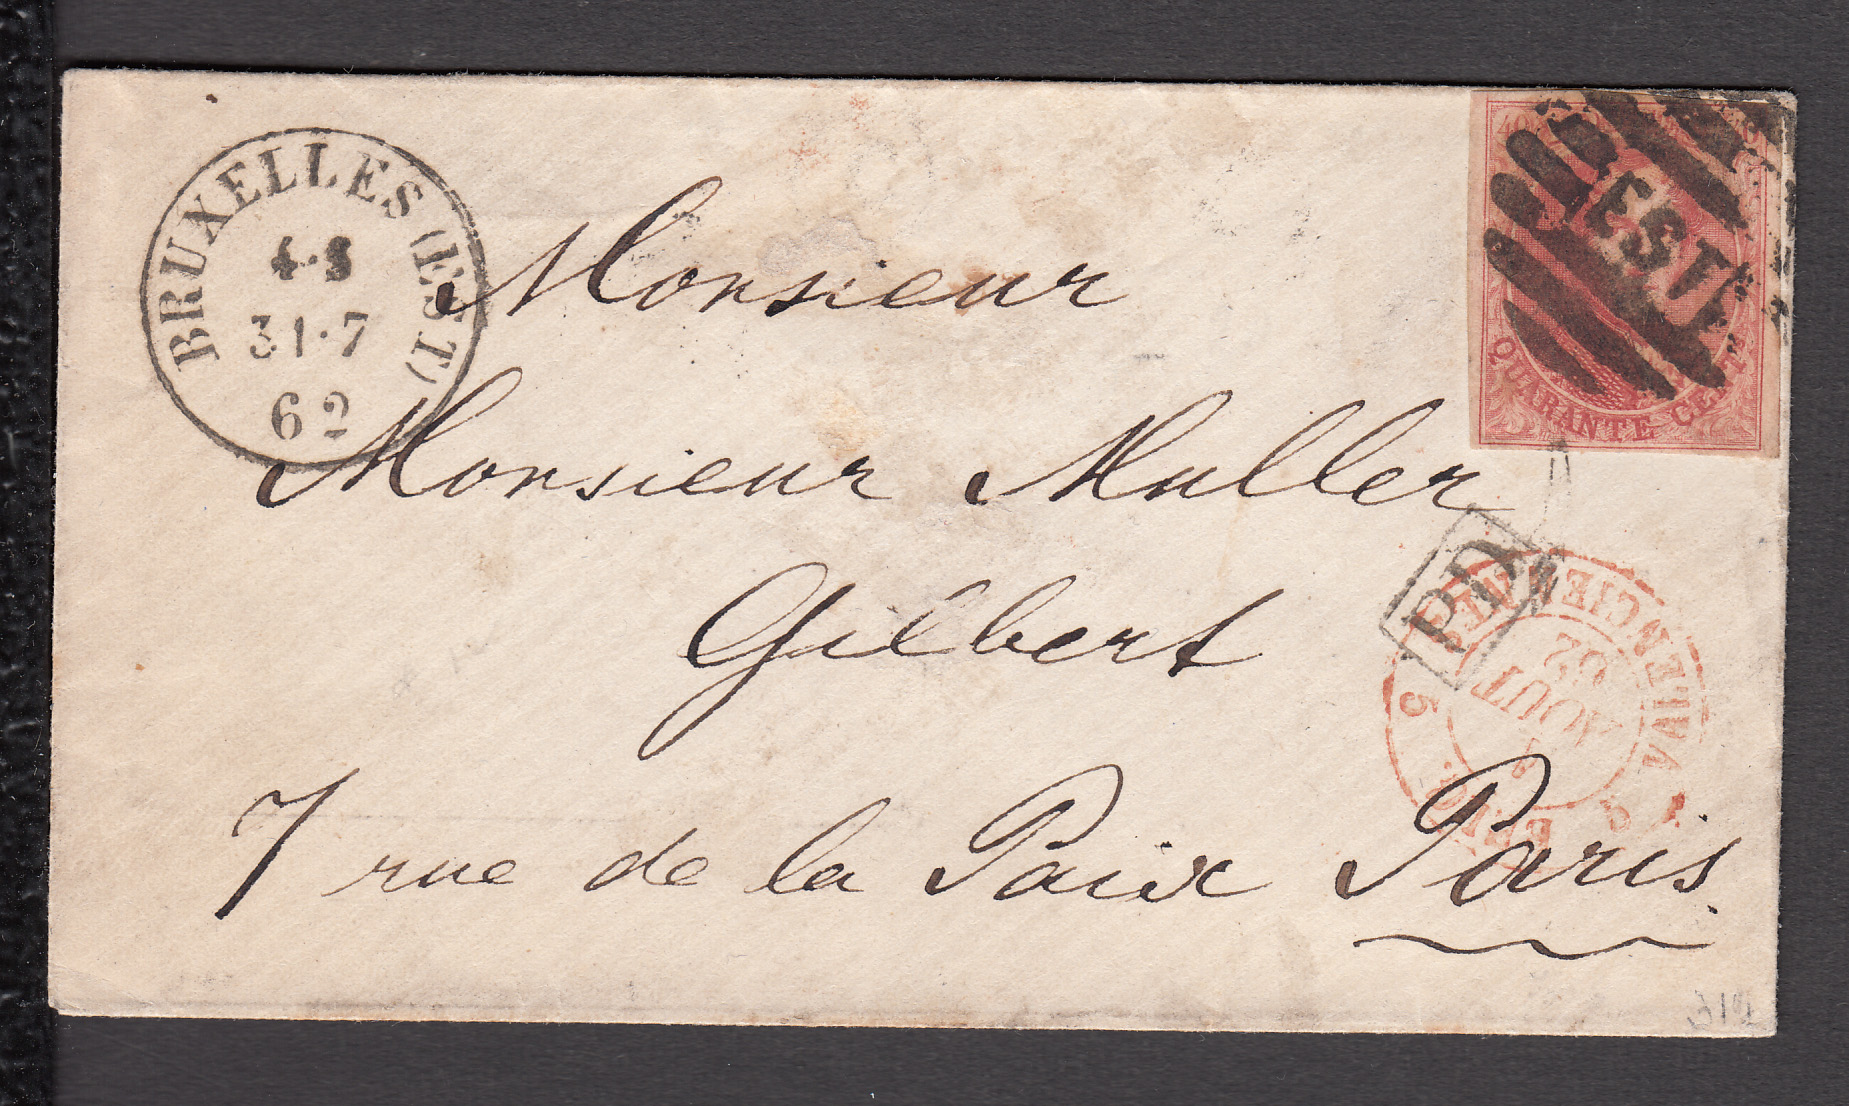 BRUXELLES (EST)
4-5
31·7
62
40
EST
QUARANTE CENT
Monsieur
Monsieur Muller
Gilbert
7 rue de la Paix Paris
PD
VALENCIENNES
5
AOUT
62